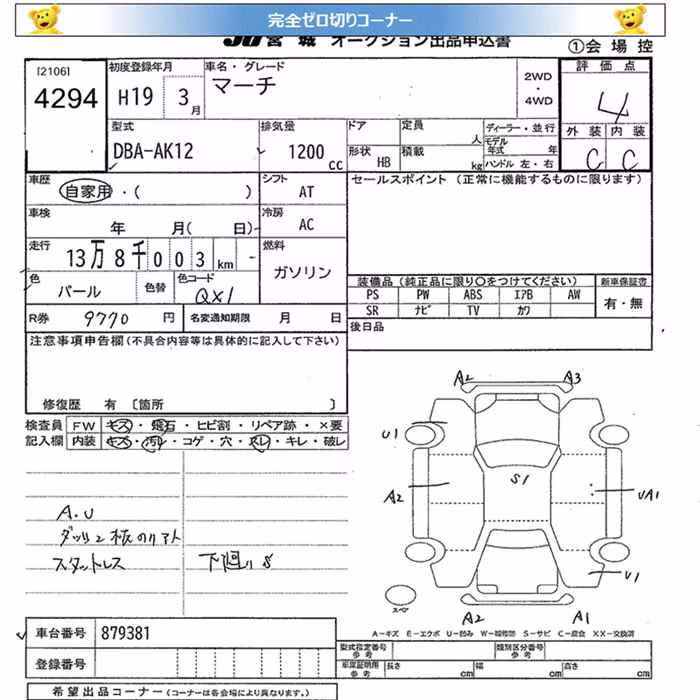 完全ゼロ切りコーナー
JU 宮城 オークション出品申込書
①会場控
[2106]
4294
初度登録年月
H19 3月
車名・グレード
マーチ
2WD
・
4WD
評価点
4
外装 内装
C C
型式
DBA-AK12
排気量
1200 cc
ドア
定員
人
形状
HB
積載
kg
ディーラー・並行
モデル年式 年
ハンドル 左・右
車歴
自家用・( )
シフト
AT
セールスポイント (正常に機能するものに限ります)
車検
年 月(日)
冷房
AC
走行
13万8千003km
燃料
ガソリン
色
パール
色替
色コード
QX1
装備品 (純正品に限り○をつけてください)
新車保証書
PS PW ABS エアB AW
SR ナビ TV カワ
有・無
R券 9770 円
名変通知期限 月 日
後日品
注意事項申告欄(不具合内容等は具体的に記入して下さい)
修復歴 有 〔箇所 〕
検査員 FW キズ・飛石・ヒビ割・リペア跡・×要
記入欄 内装 キズ・汚レ・コゲ・穴・スレ・キレ・破レ
A.U
スタットレス
下廻りS
A2 A3
U1
A2
S1
UA1
U1
A2 A1
スペア
A-キズ E-エクボ U-凹み W-補修跡 S-サビ C-腐食 XX-交換済
車台番号 879381
登録番号
型式指定番号 参考
類別区分番号 参考
車庫証明用 参考 長さ cm 幅 cm 高さ cm
希望出品コーナー(コーナーは各会場により異なります。)